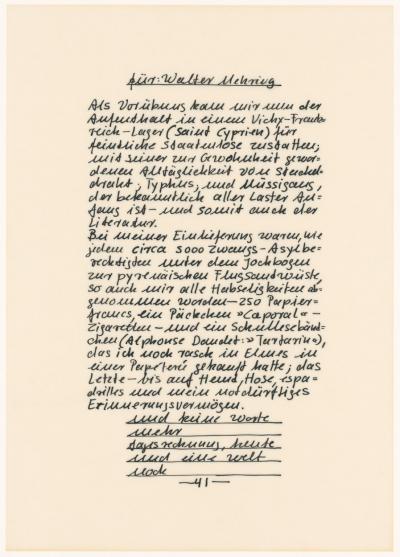 für: Walter Mehring
Als Vorübung kam mir nun der
Aufenthalt in einem Vichy-Frank=
reich-Lager (Saint Cyprien) für
feindliche Staatenlose zustatten;
mit seiner zur Gewohnheit gewor=
denen Alltäglichkeit von Stachel=
draht, Typhus, und Müssigang,
der bekanntlich aller Laster An=
fang ist - und somit auch der
Literatur.
Bei meiner Einlieferung waren, wie
jedem circa 5000 Zwangs-Asylbe=
rechtigten unter dem Jochbogen
zur pyrenäischen Flugsandwüste,
so auch mir alle Habseligkeiten ab=
genommen worden — 250 Papier=
francs, ein Päckchen »Caporal«-
Zigaretten - und ein Schulleseb­änd=
chen (Alphonse Daudet: »Tartarin«),
das ich noch rasch in Elmes in
einer Papeterie gekauft hatte; das
Letzte - bis auf Hemd, Hose, espa=
drilles und mein notdürftiges
Erinnerungsvermögen.
und keine worte
mehr
tagsrechnung, heute
und eine welt
noch
—41—